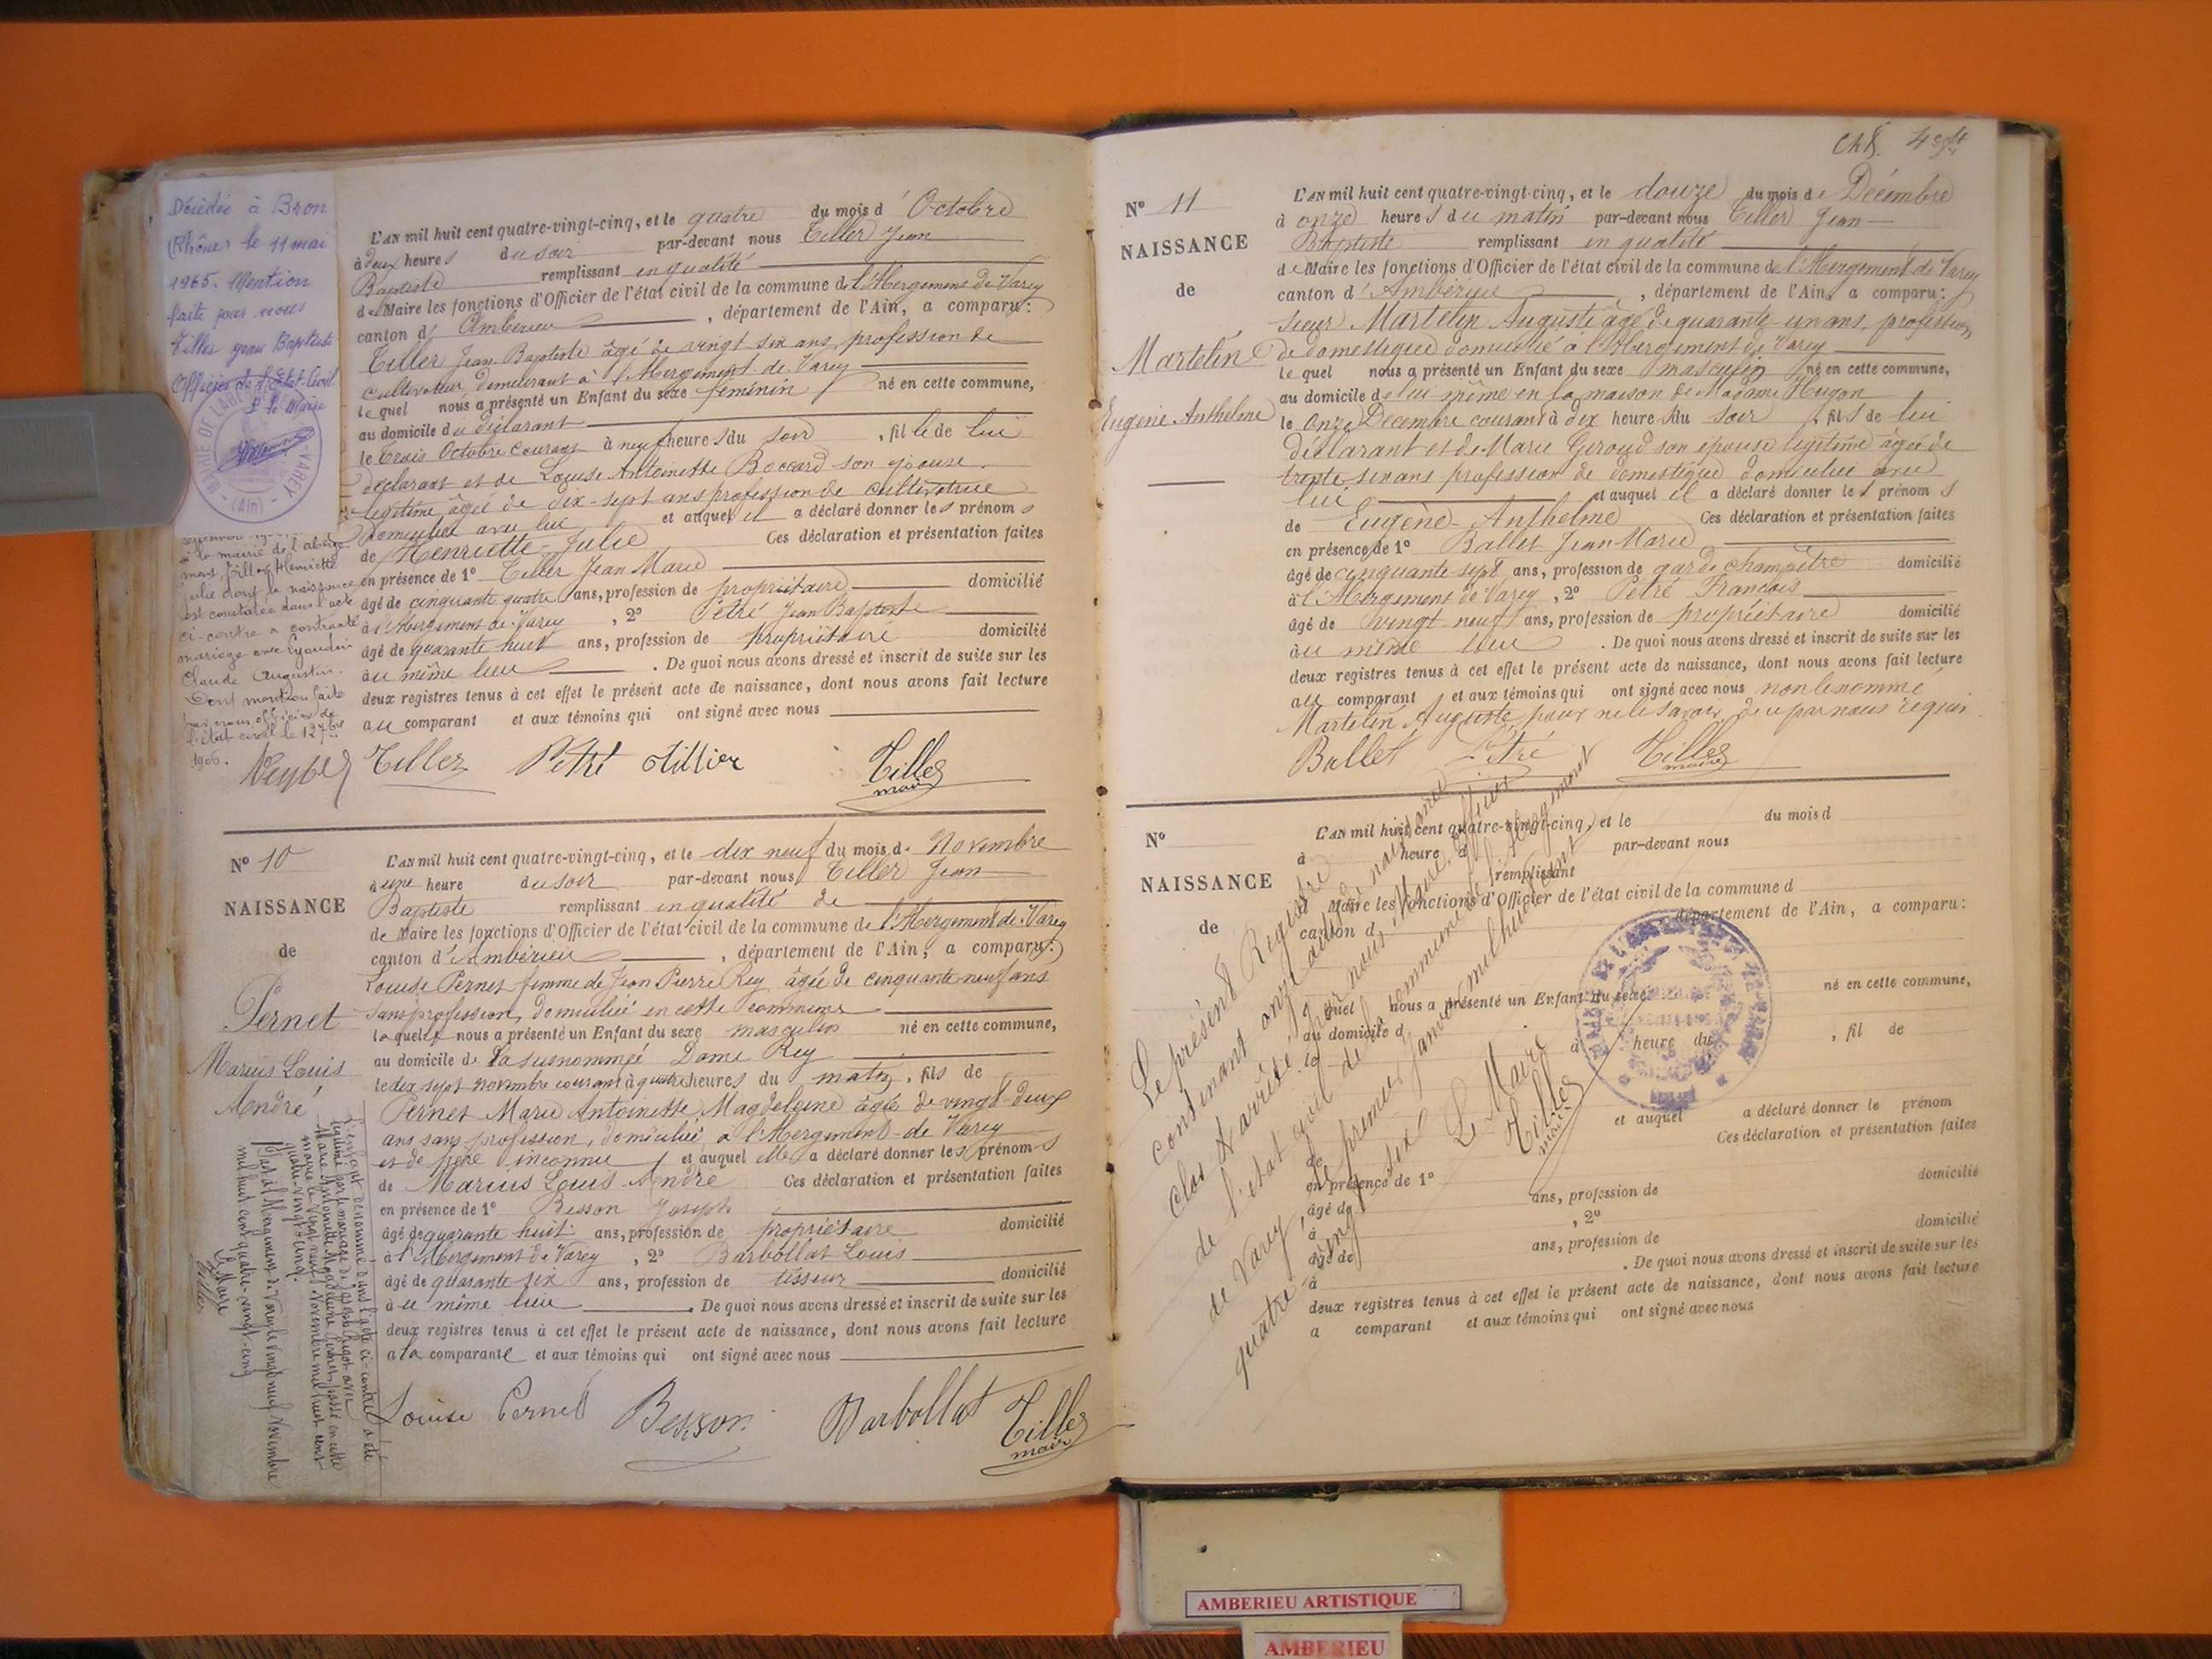 Décédée à Bron
(Rhône) le 11 mai
1965. Mention
faite par nous
Tiller Jean Baptiste
Officier de l'Etat-Civil
P. le Maire
MAIRIE DE L'ABERGEMENT DE VAREY
(Ain)
à la mairie de l'aberge-
ment, Tiller Henriette
Julie dont la naissance
est constatée dans l'acte
ci-contre a contracté
mariage avec
Claude Augustin.
Dont mention faite
par nous officier de
l'état civil le 12 7bre
1906.
L'AN mil huit cent quatre-vingt-cinq, et le quatre du mois d'Octobre
à deux heures du soir par-devant nous Tiller Jean
Baptiste remplissant en qualité
de Maire les fonctions d'Officier de l'état civil de la commune de l'Abergement de Varey
canton d'Ambérieu, département de l'Ain, a comparu:
Tiller Jean Baptiste âgé de vingt six ans, profession de
cultivateur, demeurant à l'Abergement de Varey
le quel nous a présenté un Enfant du sexe féminin né en cette commune,
au domicile du déclarant
le trois Octobre courant à neuf heures du soir, fille de lui
déclarant et de Louise Antoinette Boccard son épouse
légitime âgée de dix-sept ans profession de cultivatrice
domiciliée avec lui et auquel il a déclaré donner les prénoms
de Henriette-Julie Ces déclaration et présentation faites
en présence de 1° Tiller Jean Marie
âgé de cinquante quatre ans, profession de propriétaire domicilié
à l'Abergement de Varey, 2° Pétré Jean Baptiste
âgé de quarante huit ans, profession de propriétaire domicilié
au même lieu. De quoi nous avons dressé et inscrit de suite sur les
deux registres tenus à cet effet le présent acte de naissance, dont nous avons fait lecture
au comparant et aux témoins qui ont signé avec nous
Tiller Pétré Tillier Tiller
maire
N° 10
NAISSANCE
de
Pernet
Marius Louis
André
L'AN mil huit cent quatre-vingt-cinq, et le dix neuf du mois de Novembre
à une heure du soir par-devant nous Tiller Jean
Baptiste remplissant en qualité de
de Maire les fonctions d'Officier de l'état civil de la commune de l'Abergement de Varey
canton d'Ambérieu, département de l'Ain, a comparu:
Louise Pernet femme de Jean Pierre Rey âgée de cinquante neuf ans
sans profession, domiciliée en cette commune
laquelle nous a présenté un Enfant du sexe masculin né en cette commune,
au domicile de la susnommée Dame Rey
le dix sept novembre courant à quatre heures du matin, fils de
Pernet Marie Antoinette Magdeleine âgée de vingt-deux
ans sans profession, domiciliée à l'Abergement-de Varey
et de père inconnu et auquel elle a déclaré donner les prénoms
de Marius Louis André Ces déclaration et présentation faites
en présence de 1° Besson Joseph
âgé de quarante huit ans, profession de propriétaire domicilié
à l'Abergement de Varey, 2° Barbollat Louis
âgé de quarante six ans, profession de tisseur domicilié
au même lieu. De quoi nous avons dressé et inscrit de suite sur les
deux registres tenus à cet effet le présent acte de naissance, dont nous avons fait lecture
a la comparante et aux témoins qui ont signé avec nous
Louise Pernet Besson Barbollat Tiller
maire
L'enfant dénommé dans l'acte ci-contre a été
légitimé par le mariage de Joseph avec
Marie Antoinette Magdeleine Pernet, passé en cette
mairie le vingt neuf Novembre mil huit cent
quatre-vingt-cinq.
Fait à l'Abergement de Varey le vingt neuf Novembre
mil huit cent quatre-vingt-cinq
Le Maire
Tiller
N° 11
NAISSANCE
de
Martelin
Eugène Anthelme
L'AN mil huit cent quatre-vingt-cinq, et le douze du mois de Décembre
à onze heures du matin par-devant nous Tiller Jean-
Baptiste remplissant en qualité
de Maire les fonctions d'Officier de l'état civil de la commune de l'Abergement de Varey
canton d'Ambérieu, département de l'Ain, a comparu:
sieur Martelin Auguste âgé de quarante-un ans, profession
de domestique domicilié à l'Abergement de Varey
le quel nous a présenté un Enfant du sexe masculin né en cette commune,
au domicile de lui-même en la maison de Madame Hugon
le onze Décembre courant à dix heures du soir, fils de lui
déclarant et de Marie Giroud son épouse légitime âgée de
trente six ans profession de domestique domiciliée avec
lui et auquel il a déclaré donner les prénoms
de Eugène-Anthelme Ces déclaration et présentation faites
en présence de 1° Ballet Jean Marie
âgé de cinquante-sept ans, profession de garde champêtre domicilié
à l'Abergement de Varey, 2° Pétré François
âgé de vingt neuf ans, profession de propriétaire domicilié
au même lieu. De quoi nous avons dressé et inscrit de suite sur les
deux registres tenus à cet effet le présent acte de naissance, dont nous avons fait lecture
au comparant et aux témoins qui ont signé avec nous non le nommé
Martelin Auguste pour ne le savoir de ce par nous requis
Ballet Pétré Tiller
maire
N°
NAISSANCE
de
L'AN mil huit cent quatre-vingt-cinq, et le du mois d
à heure d par-devant nous
remplissant
d Maire les fonctions d'Officier de l'état civil de la commune d
canton d département de l'Ain, a comparu:
quel nous a présenté un Enfant du sexe né en cette commune,
au domicile d
le à heure du, fil de
et auquel a déclaré donner le prénom
de Ces déclaration et présentation faites
en présence de 1°
âgé de ans, profession de domicilié
à, 2°
âgé de ans, profession de domicilié
à. De quoi nous avons dressé et inscrit de suite sur les
deux registres tenus à cet effet le présent acte de naissance, dont nous avons fait lecture
a comparant et aux témoins qui ont signé avec nous
Le présent Registre
contenant onze actes de naissance
clos et arrêté par nous Maire, Officier
de l'état civil de la commune de l'Abergement
de Varey, le premier Janvier mil huit cent
quatre vingt six
Le Maire
Tiller
maire
AMBERIEU ARTISTIQUE
AMBERIEU